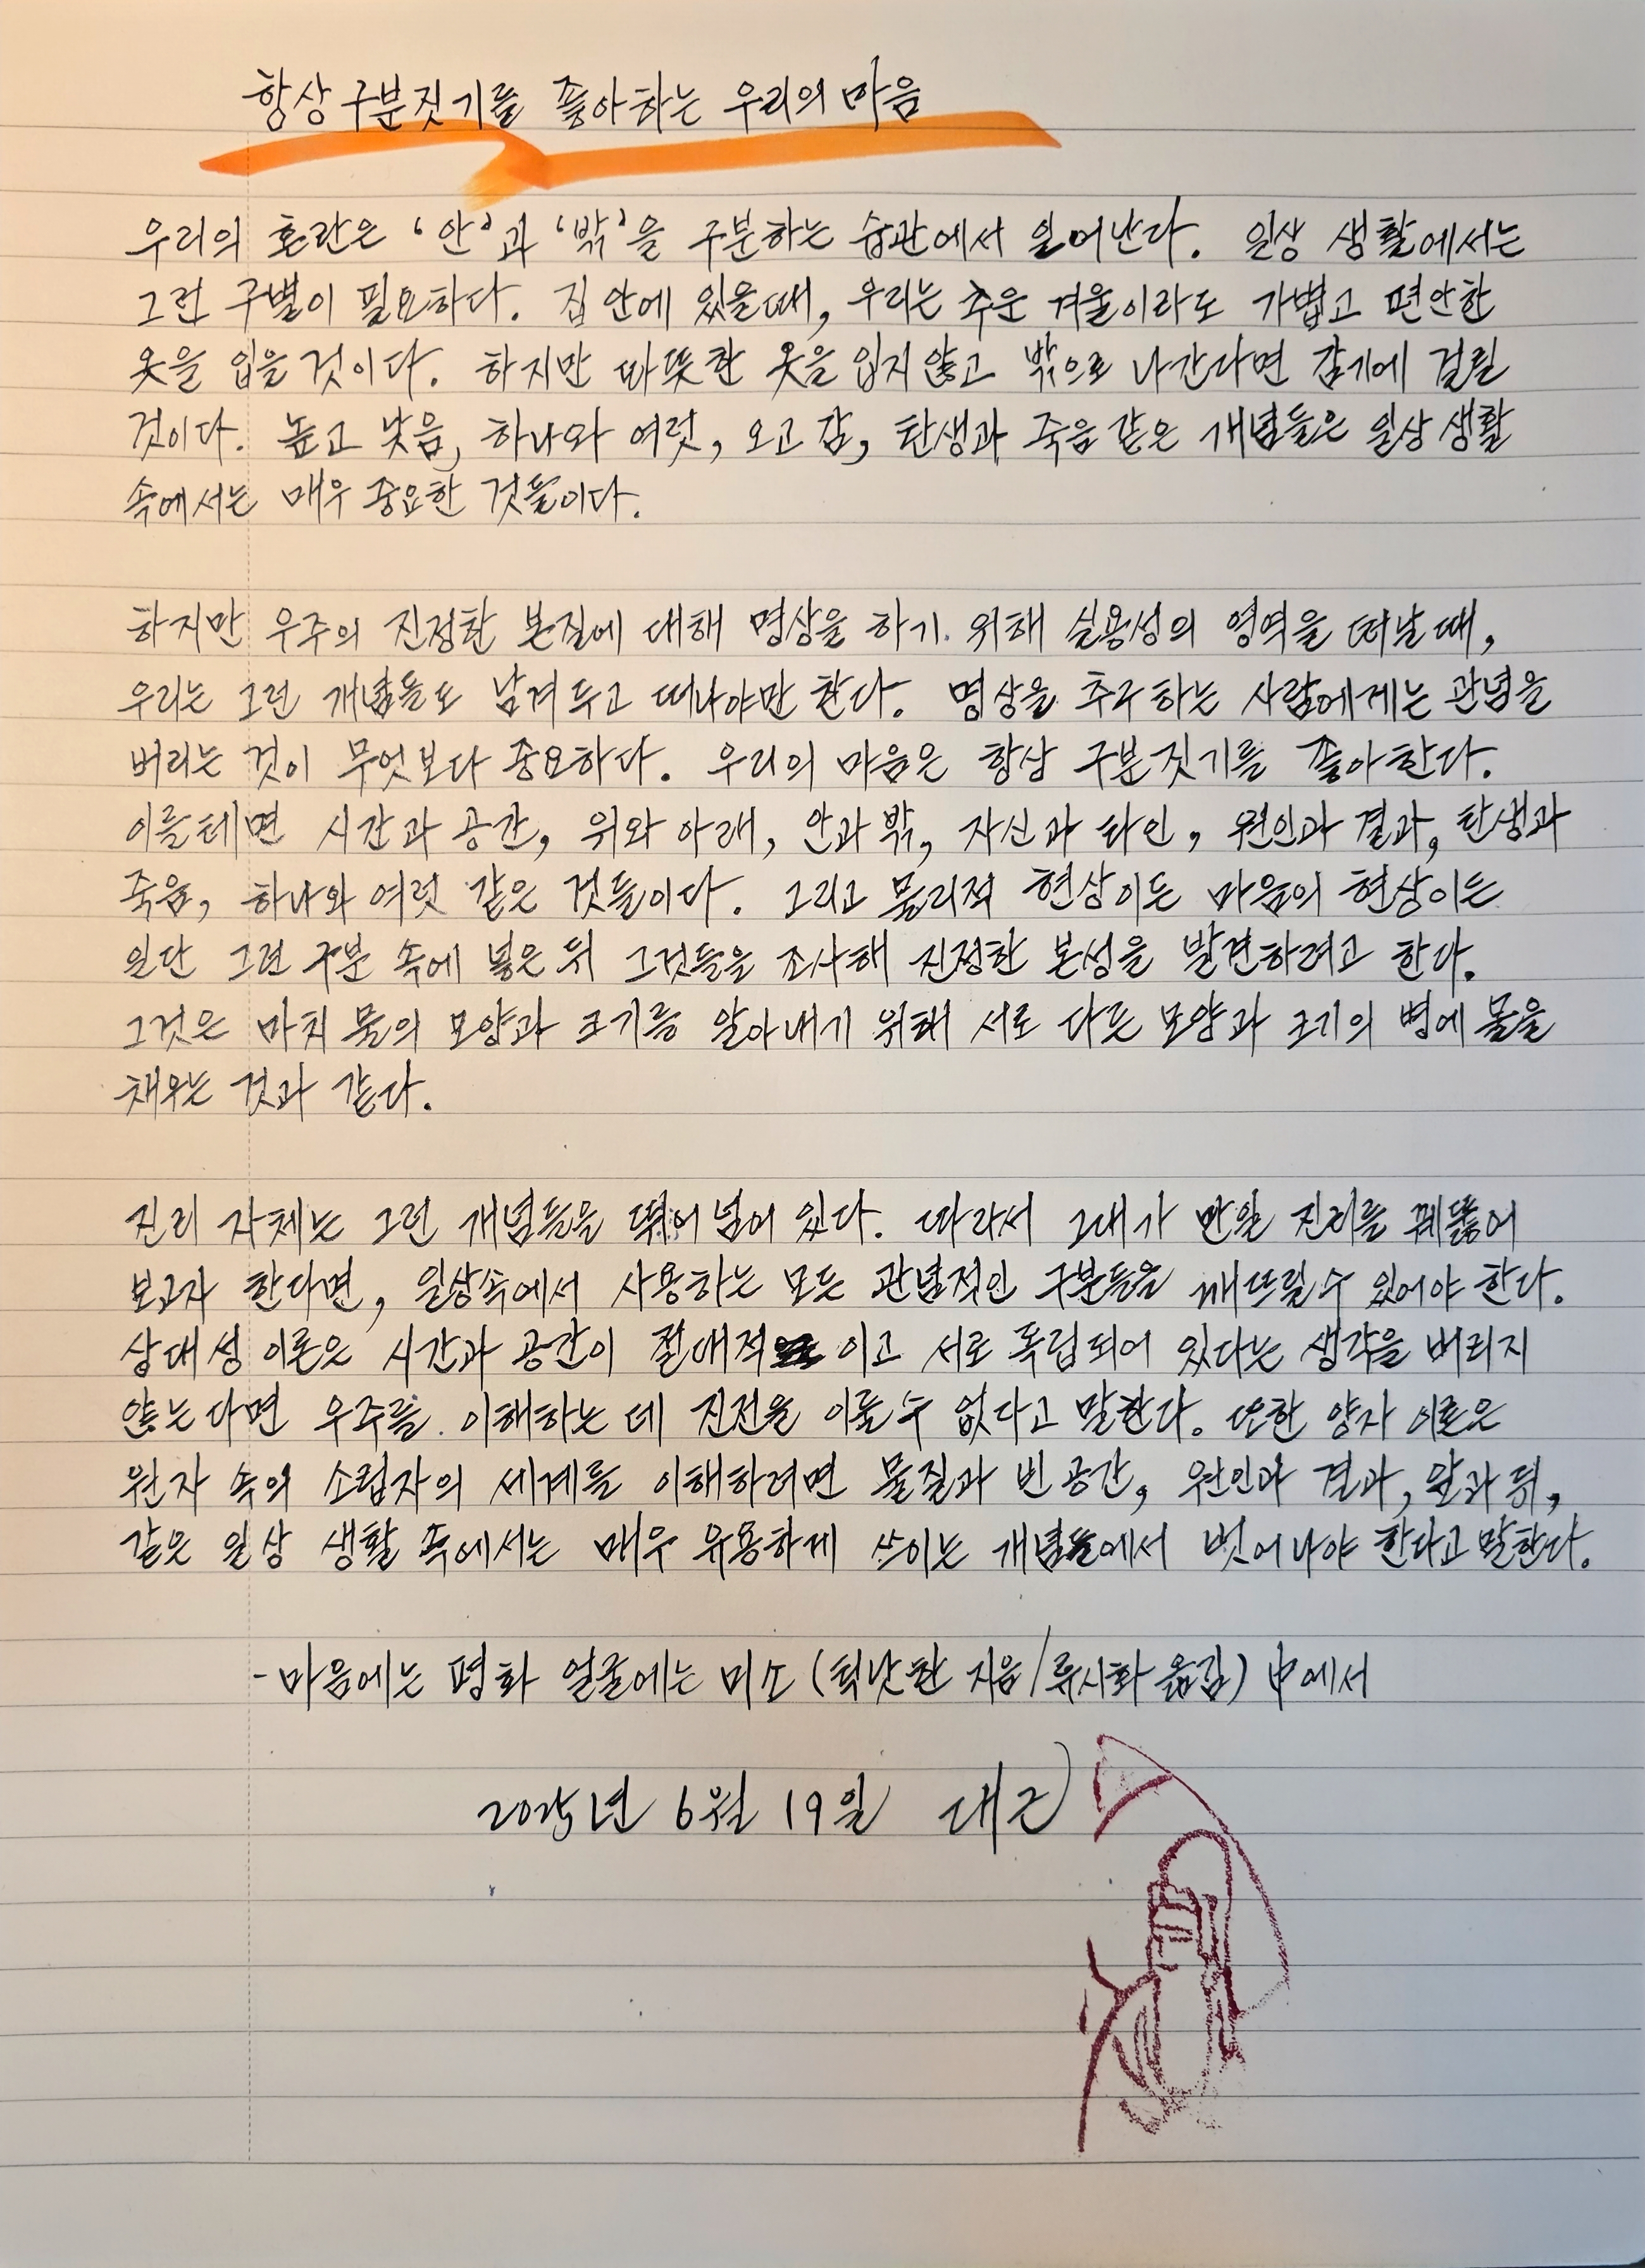 항상 구분짓기를 좋아하는 우리의 마음
우리의 혼란은 '안'과 '밖'을 구분하는 습관에서 일어난다. 일상 생활에서는
그런 구별이 필요하다. 집 안에 있을때, 우리는 추운 겨울이라도 가볍고 편안한
옷을 입을 것이다. 하지만 따뜻한 옷을 입지 않고 밖으로 나간다면 감기에 걸릴
것이다. 높고 낮음, 하나와 여럿, 오고 감, 탄생과 죽음 같은 개념들은 일상 생활
속에서는 매우 중요한 것들이다.
하지만 우주의 진정한 본질에 대해 명상을 하기 위해 실용성의 영역을 떠날 때,
우리는 그런 개념들도 남겨 두고 떠나야만 한다. 명상을 추구하는 사람에게는 관념을
버리는 것이 무엇보다 중요하다. 우리의 마음은 항상 구분짓기를 좋아한다.
이를테면 시간과 공간, 위와 아래, 안과 밖, 자신과 타인, 원인과 결과, 탄생과
죽음, 하나와 여럿 같은 것들이다. 그리고 물리적 현상이든 마음의 현상이든
일단 그런 구분 속에 넣은 뒤 그것들을 조사해 진정한 본성을 발견하려고 한다.
그것은 마치 물의 모양과 크기를 알아내기 위해 서로 다른 모양과 크기의 병에 물을
채우는 것과 같다.
진리 자체는 그런 개념들을 뛰어 넘어 있다. 따라서 그대가 만일 진리를 꿰뚫어
보고자 한다면, 일상속에서 사용하는 모든 관념적인 구분들을 깨뜨릴 수 있어야 한다.
상대성 이론은 시간과 공간이 절대적 이고 서로 독립되어 있다는 생각을 버리지
않는다면 우주를 이해하는 데 진전을 이룰 수 없다고 말한다. 또한 양자 이론은
원자 속의 소립자의 세계를 이해하려면 물질과 빈 공간, 원인과 결과, 앞과 뒤,
같은 일상 생활 속에서는 매우 유용하게 쓰이는 개념들에서 벗어나야 한다고 말한다.
- 마음에는 평화 얼굴에는 미소 (틱낫한 지음/류시화 옮김) 中에서
2025년 6월 19일 대근